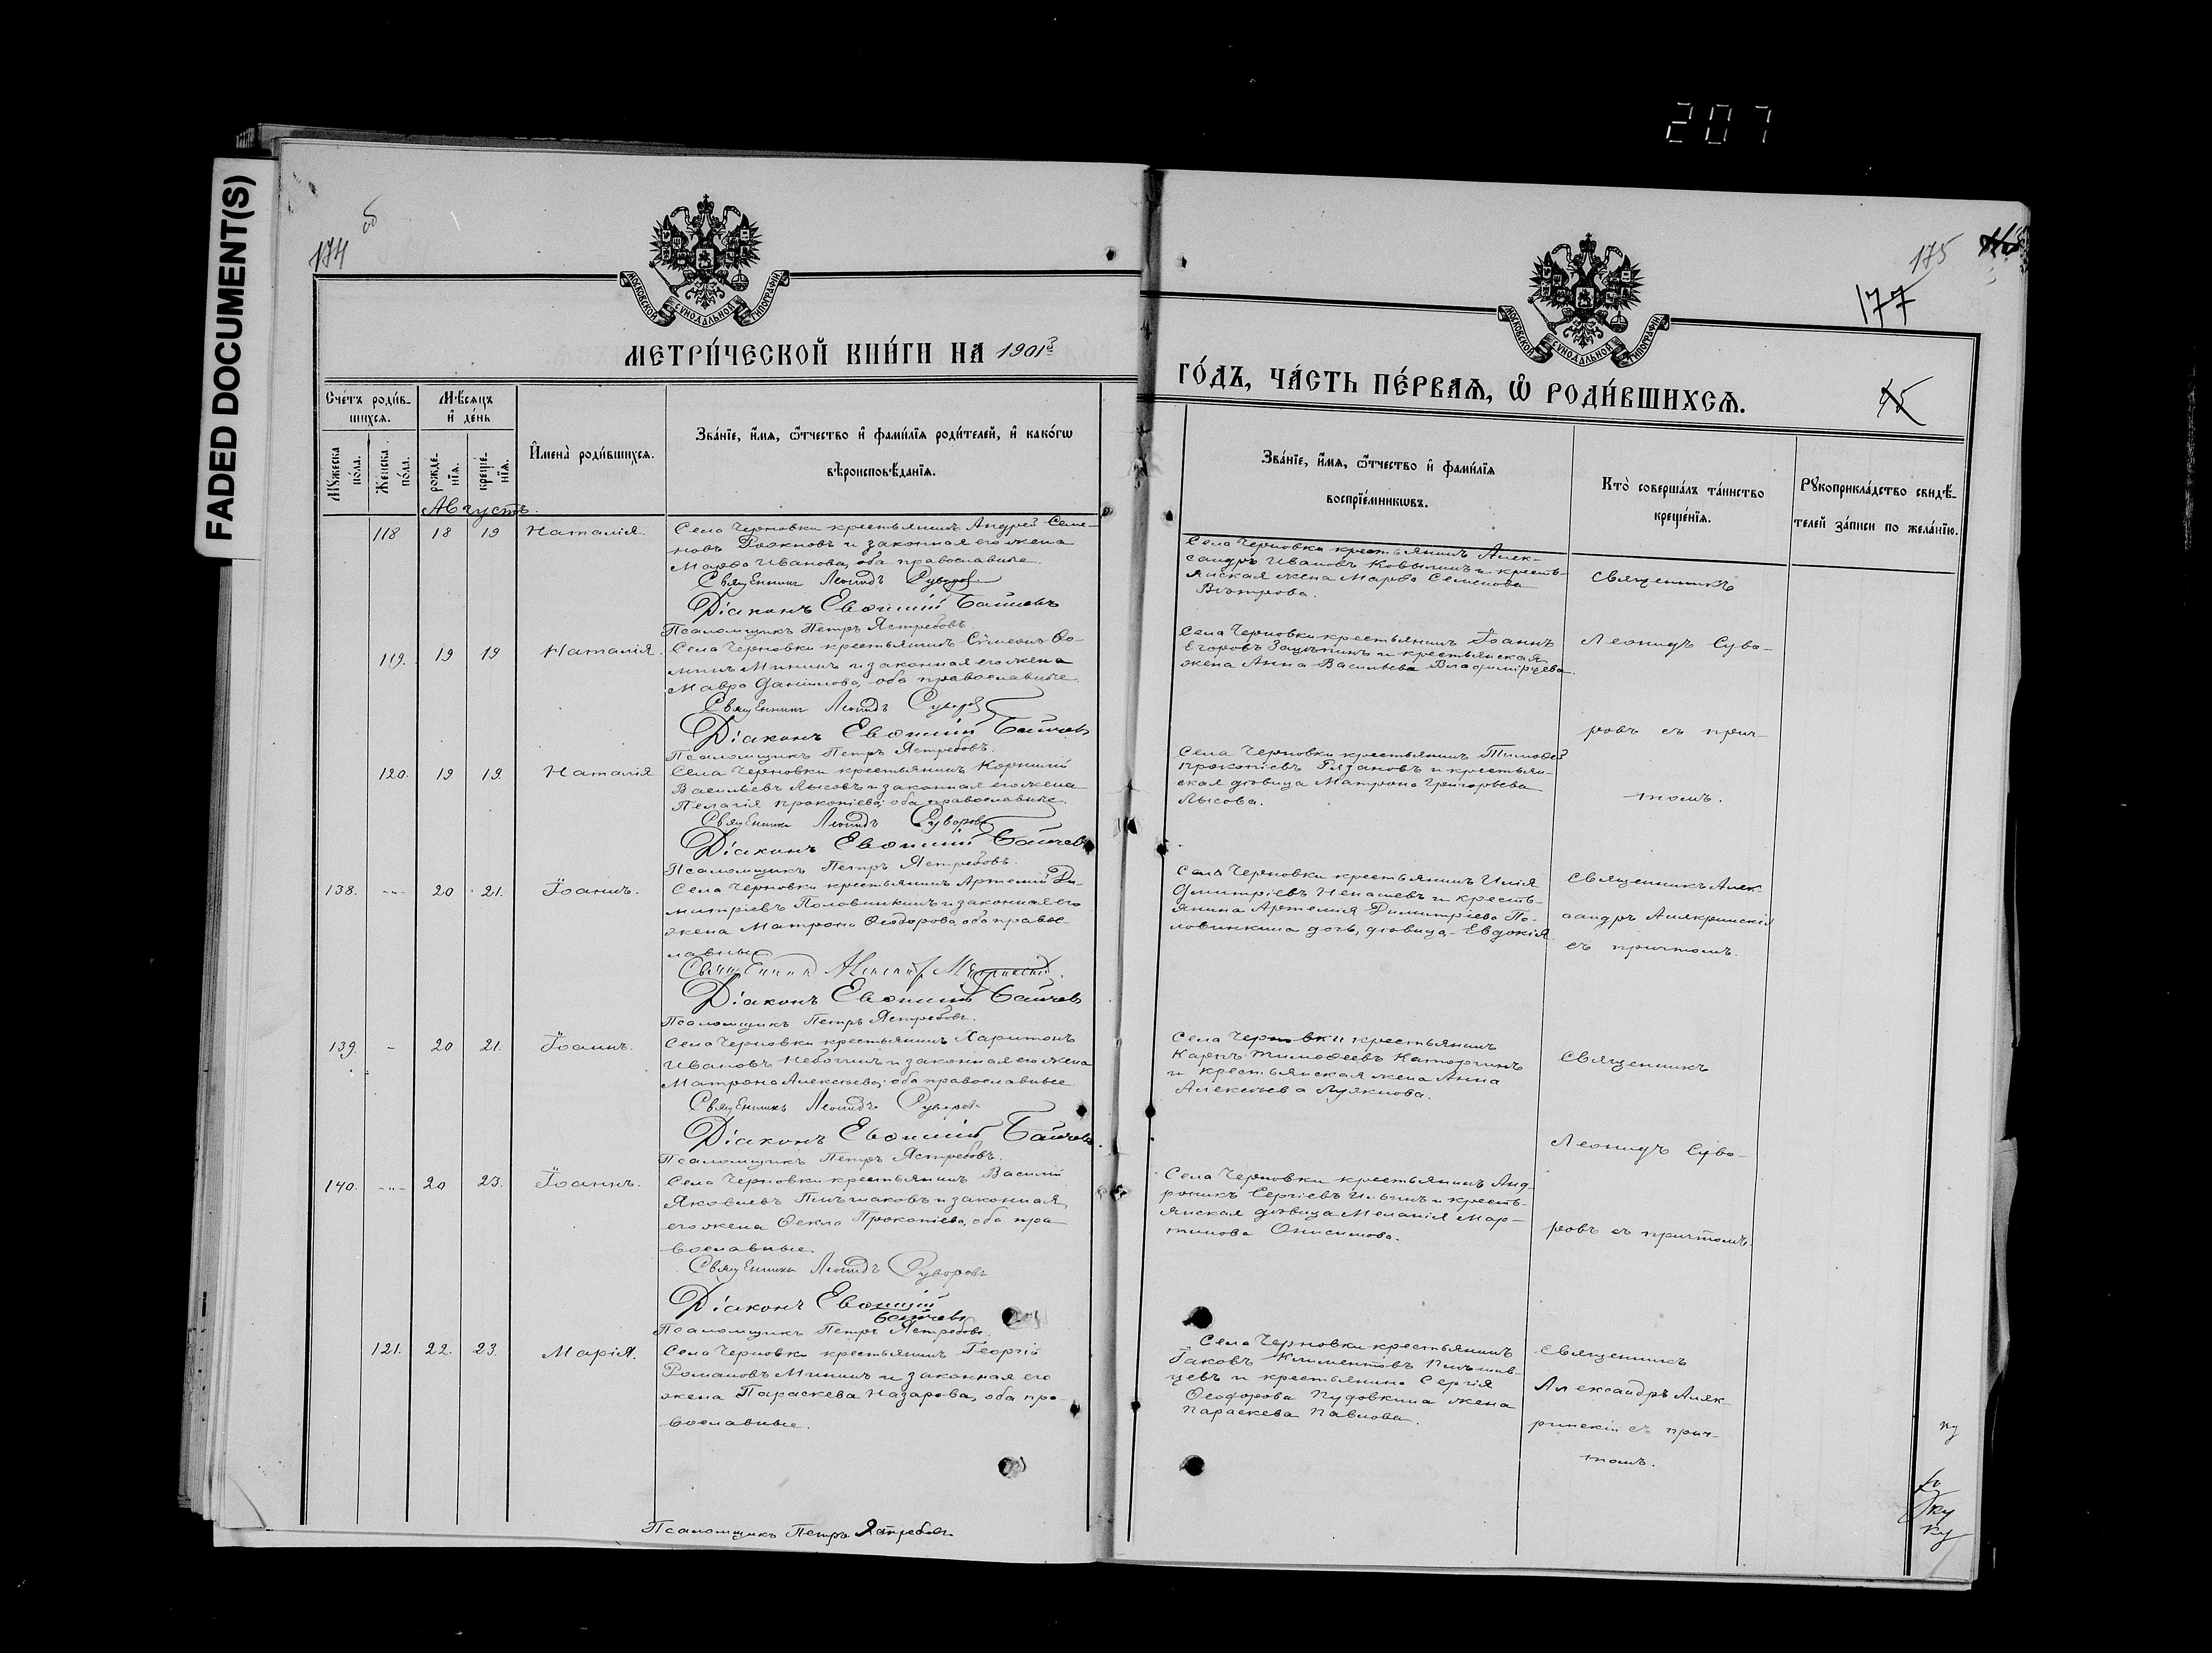 207
FADED DOCUMENT(S)
174
об
175
177
МОСКОВСКОЙ СѴНОДАЛЬНОЙ ТИПОГРАФІИ
МОСКОВСКОЙ СѴНОДАЛЬНОЙ ТИПОГРАФІИ
МЕТРИ́ЧЕСКОЙ КНИ́ГИ НА 1901
ГО́ДЪ, ЧА́СТЬ ПЕ́РВАѦ, Ѡ РОДИ́ВШИХСѦ.
Сче́тъ роди́в-
шихсѧ.
Мѣ́сѧцъ
и де́нь
Мꙋ́жеска
по́ла.
Же́нска
по́ла.
рожде́-
нїѧ.
креще́-
нїѧ.
Имена̀ роди́вшихсѧ.
Зва́нїе, и́мѧ, ѻ́тчество и фами́лїѧ роди́телей, и како́гѡ
вѣроисповѣ́данїѧ.
Зва́нїе, и́мѧ, ѻ́тчество и фами́лїѧ
воспрїе́мникѡвъ.
Кто̀ соверша́лъ та́инство
креще́нїѧ.
Рꙋкоприкла́дство свидѣ́-
телей за́писи по жела́нїю.
Августъ.
118 18 19 Наталія.
Села Черновки крестьянинъ Андрей Семе-
новъ и законная его жена
Марѳа Иванова, оба православные.
Священникъ Леонидъ Суворовъ
Діаконъ Евѳимій
Псаломщикъ Петръ Ястребовъ.
Села Черновки крестьянинъ Алек-
сандръ Ивановъ Ковылинъ и кресть-
янская жена Марѳа Семенова
Вѣтрова.
Священникъ
119. 19 19 Наталія.
Села Черновки крестьянинъ Сѵмеонъ Ѳо-
минъ Мининъ и законная его жена
Мавра Данилова, оба православные.
Священникъ Леонидъ Суворовъ
Діаконъ Евѳимій
Псаломщикъ Петръ Ястребовъ.
Села Черновки крестьянинъ Іоаннъ
Егоровъ Зацѣпинъ и крестьянская
жена Анна Васильева Владимірцева.
Леонидъ Суво-
ровъ съ прич-
120. 19 19. Наталія
Села Черновки крестьянинъ Корнилій
Васильевъ Лысовъ и законная его жена
Пелагія Прокопіева, оба православные.
Священникъ Леонидъ Суворовъ
Діаконъ Евѳимій
Псаломщикъ Петръ Ястребовъ.
Села Черновки крестьянинъ Тимоѳей
Прокопіевъ Рязановъ и крестьян-
ская дѣвица Матрона Григорьева
Лысова.
томъ.
138. -"- 20 21. Іоаннъ.
Села Черновки крестьянинъ Артемій Ди-
митріевъ Половинкинъ и законная его
жена Матрона Ѳеодорова, оба право-
славные
Діаконъ Евѳимій
Псаломщикъ Петръ Ястребовъ.
Села Черновки крестьянинъ Илія
Димитріевъ Ненашевъ и кресть-
янина Артемія Димитріева По-
ловинкина дочь, дѣвица, Евдокія.
Священникъ Алек-
сандръ Алякринскій
съ причтомъ.
139. - 20 21. Іоаннъ.
Села Черновки крестьянинъ Харитонъ
Ивановъ и законная его жена
Матрона Алексѣева, оба православные.
Священникъ Леонидъ Суворовъ
Діаконъ Евѳимій
Псаломщикъ Петръ Ястребовъ.
Села Черновки крестьянинъ
Карпъ Тимоѳеевъ
и крестьянская жена Анна
Алексѣева
Священникъ
Леонидъ Суво-
140. -"- 20 23. Іоаннъ.
Села Черновки крестьянинъ Василій
Яковлевъ и законная
его жена Ѳекла Прокопіева, оба пра-
вославные.
Священникъ Леонидъ Суворовъ
Діаконъ Евѳимій
Псаломщикъ Петръ Ястребовъ.
Села Черновки крестьянинъ Анд-
роникъ Сергіевъ Ильинъ и кресть-
янская дѣвица Меланія Мар-
тинова Онисимова.
ровъ съ причтомъ.
121. 22. 23. Марія.
Села Черновки крестьянинъ Георгій
Романовъ Мининъ и законная его
жена Параскева Назарова, оба пра-
вославные.
Псаломщикъ Петръ Ястребовъ
Села Черновки крестьянинъ
Іаковъ Климентовъ
и крестьянина Сергія
Ѳеодорова Пудовкина жена
Параскева Павлова.
Священникъ
Александръ Аляк-
ринскій съ прич-
томъ.